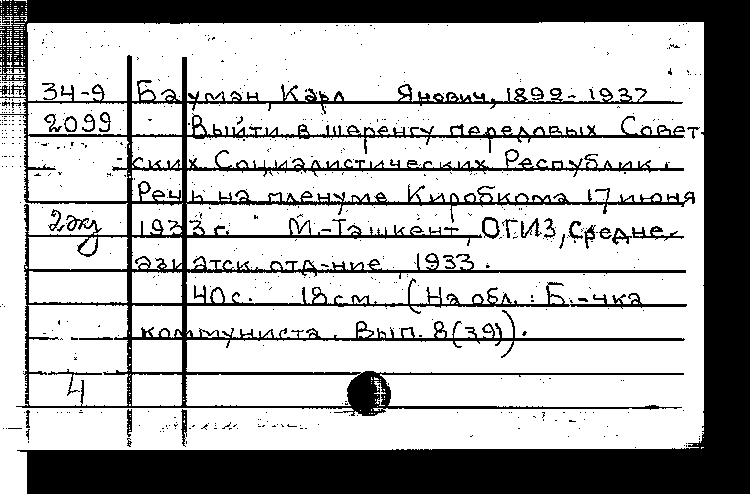 34-9 Бауман, Карл Янович, 1892-1937
2099 Выйти в шеренгу передовых Совет-
ских Социалистических Республик.
Речь на пленуме Киробкома 17 июня
2экз 1933 г. М.-Ташкент, ОГИЗ, Средне-
азиатск. отд-ние, 1933.
40 с. 18 см. (На обл.: Б.-чка
коммуниста. Вып. 8(39)).
4